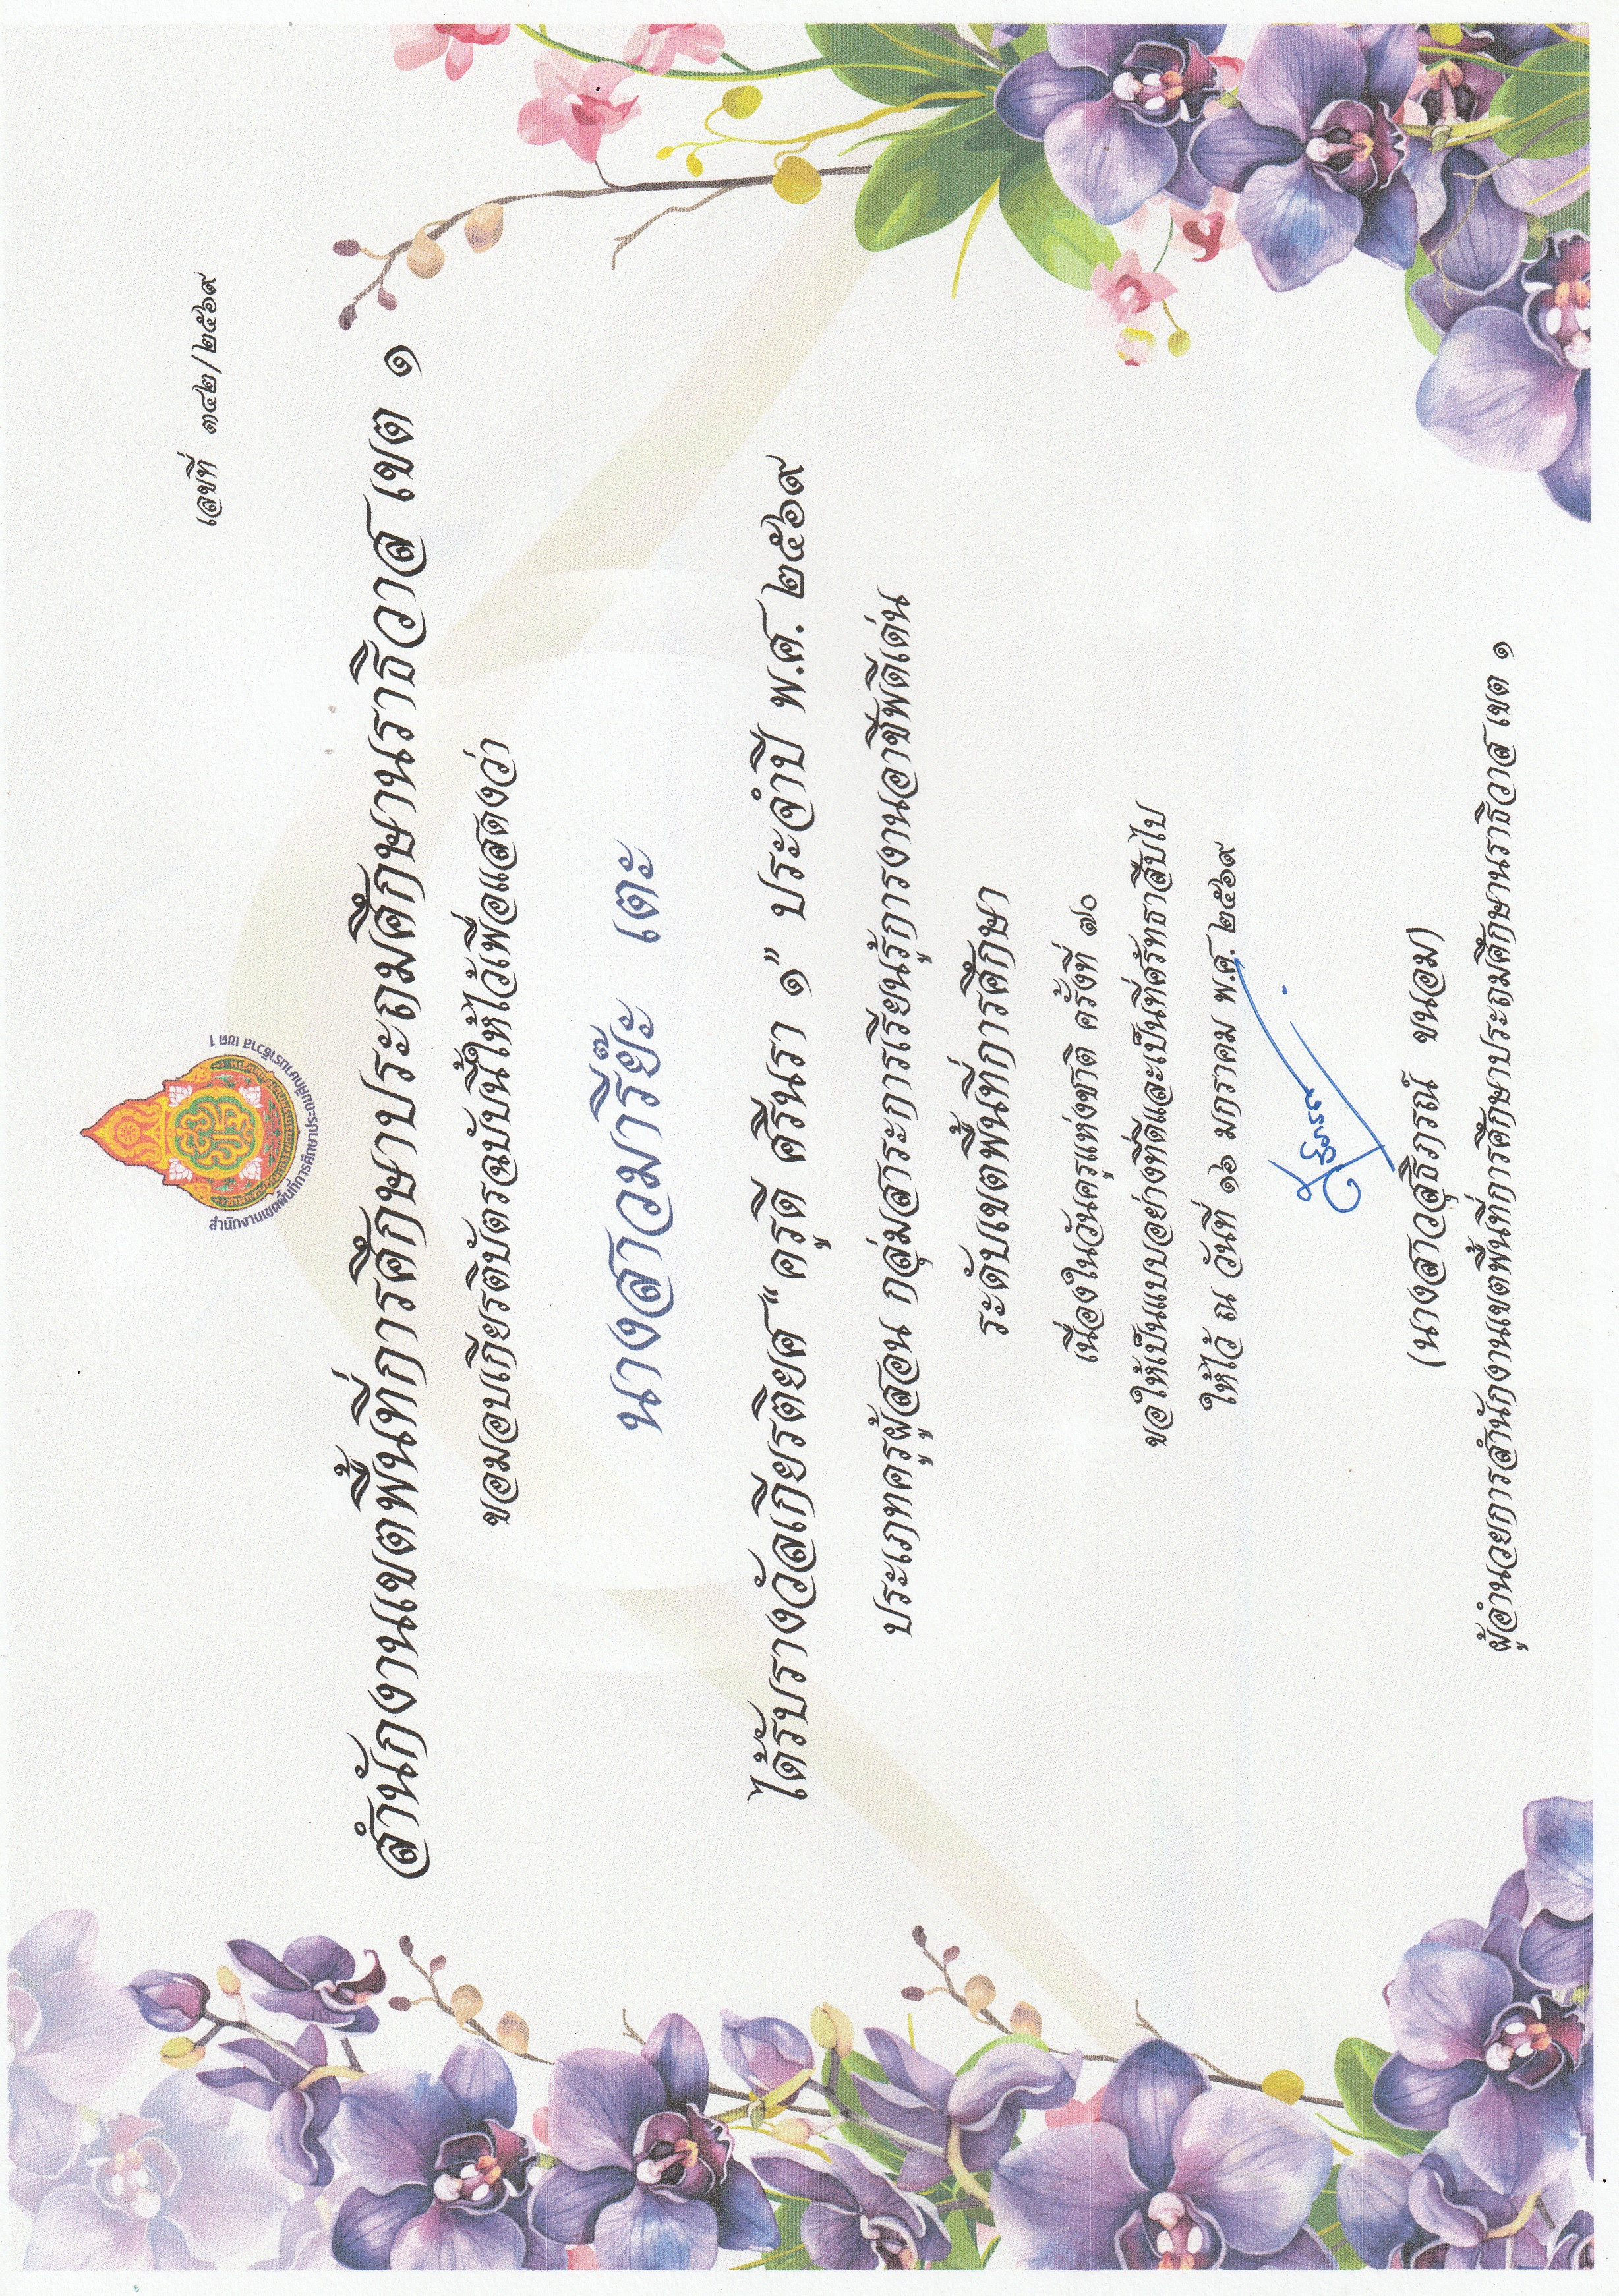 เลขที่ ๓๔๒/๒๕๖๙
สำนักงานเขตพื้นที่การศึกษาประถมศึกษานราธิวาส เขต 1
สำนักงานเขตพื้นที่การศึกษาประถมศึกษานราธิวาส เขต ๑
ขอมอบเกียรติบัตรฉบับนี้ให้ไว้เพื่อแสดงว่า
นางสาวมารีย๊ะ เตะ
ได้รับรางวัลเกียรติยศ "ครูดี ศรีนรา ๑" ประจำปี พ.ศ. ๒๕๖๙
ประเภทครูผู้สอน กลุ่มสาระการเรียนรู้การงานอาชีพดีเด่น
ระดับเขตพื้นที่การศึกษา
เนื่องในวันครูแห่งชาติ ครั้งที่ ๗๐
ขอให้เป็นแบบอย่างที่ดีและเป็นที่ศรัทธาสืบไป
ให้ไว้ ณ วันที่ ๑๖ มกราคม พ.ศ. ๒๕๖๙
(นางสาวสุธิภรณ์ ขนอม)
ผู้อำนวยการสำนักงานเขตพื้นที่การศึกษาประถมศึกษานราธิวาส เขต ๑